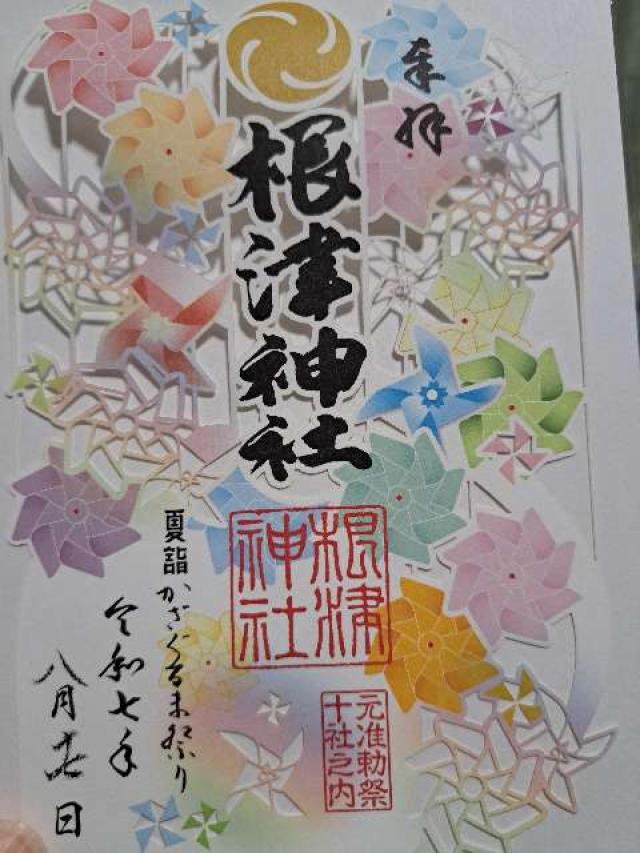 奉拝
根津神社
根津
神社
元准勅祭
十社之内
夏詣かざぐるま祭り
令和七年
八月日